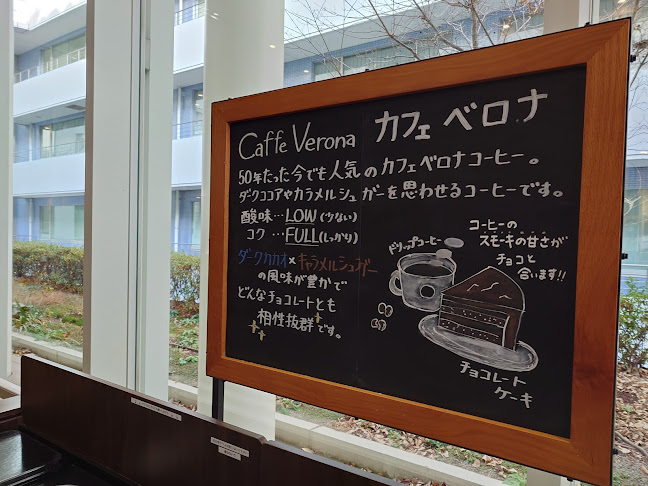 Caffe Verona カフェ ベロナ
50年たった今でも人気のカフェベロナコーヒー。
ダークココアやカラメルシュガーを思わせるコーヒーです。
酸味…LOW(少ない)
コク…FULL(しっかり)
ダークカカオ×キャラメルシュガー
の風味が豊かで
どんなチョコレートとも
相性抜群です。
コーヒーの
スモーキの甘さが
チョコと
合います!!
ドリップコーヒー
チョコレート
ケーキ